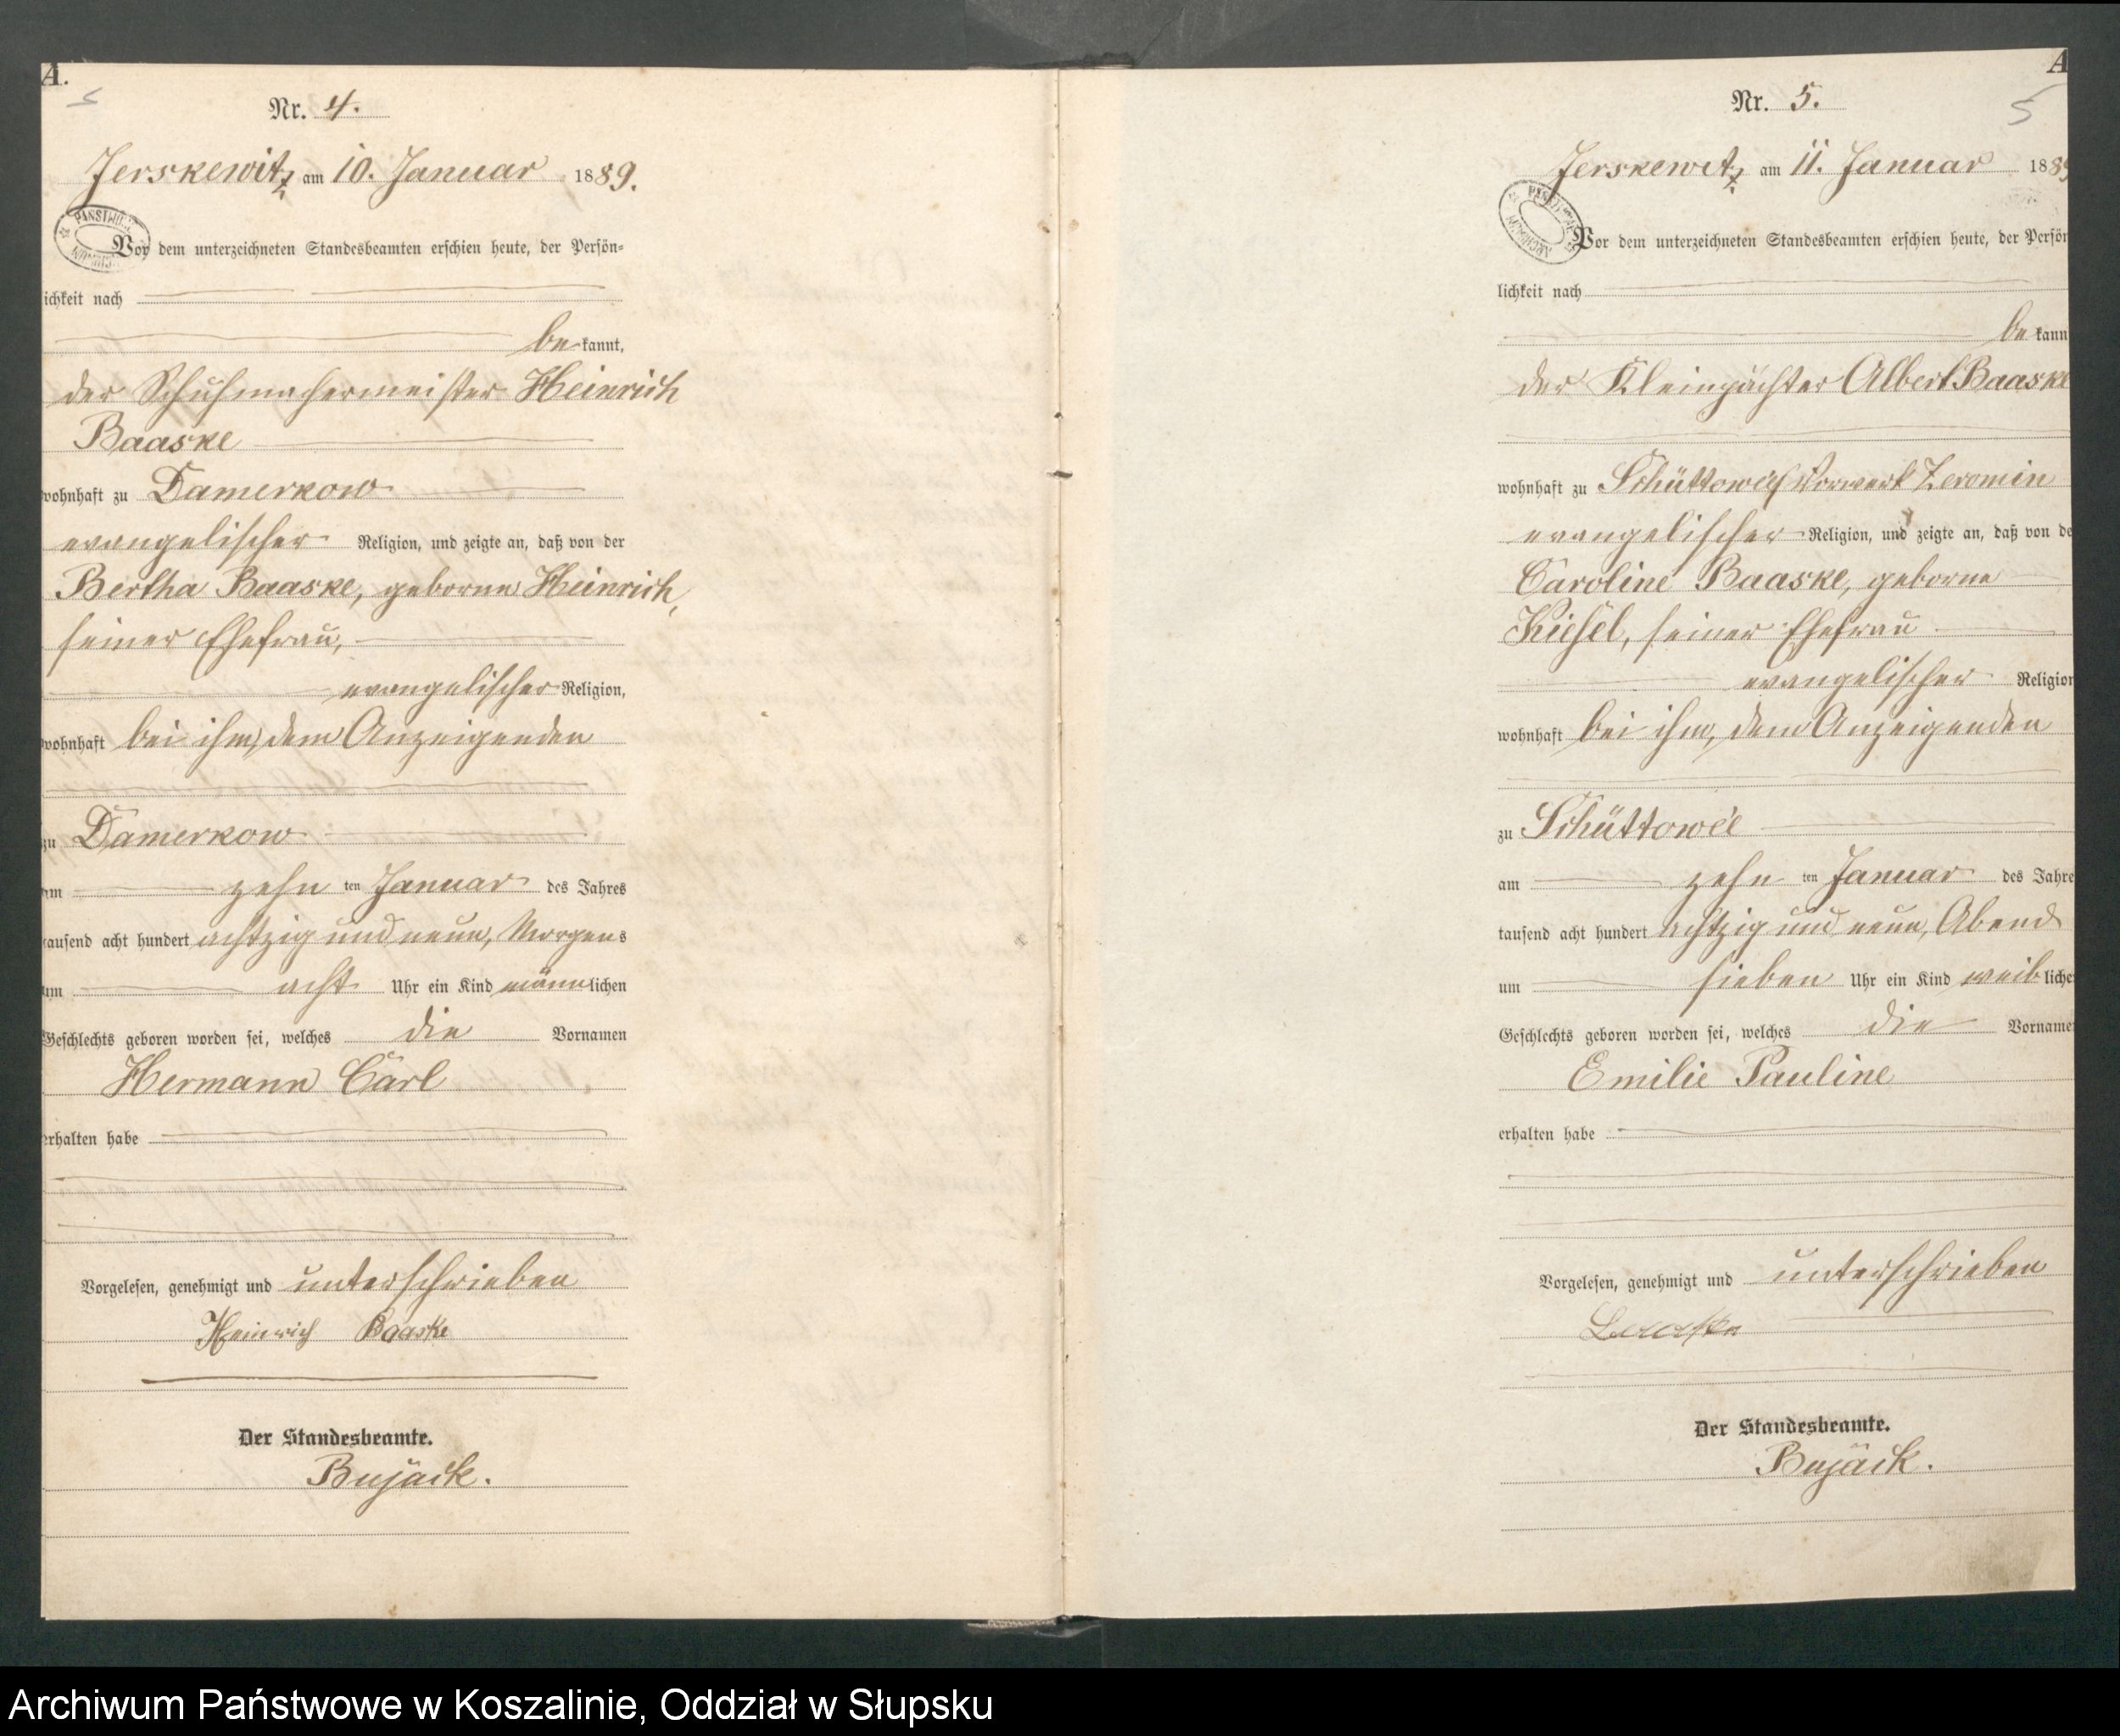 A.
5
Nr. 4.
Jerskewitz, am 10. Januar 1889.
Vor dem unterzeichneten Standesbeamten erschien heute, der Persön=
lichkeit nach
be kannt,
der Schuhmachermeister Heinrich
Baaske
wohnhaft zu Damerkow
evangelischer Religion, und zeigte an, daß von der
Bertha Baaske, geborne Heinrich,
seiner Ehefrau,
evangelischer Religion,
wohnhaft bei ihm, dem Anzeigenden
zu Damerkow
am zehn ten Januar des Jahres
tausend acht hundert achtzig und neun, Morgens
um acht Uhr ein Kind männlichen
Geschlechts geboren worden sei, welches die Vornamen
Hermann Carl
erhalten habe
Vorgelesen, genehmigt und unterschrieben
Heinrich Baaske
Der Standesbeamte.
Bujack.
A
5
Nr. 5.
Jerskewitz, am 11. Januar 1889
Vor dem unterzeichneten Standesbeamten erschien heute, der Persön
lichkeit nach
be kann
der Kleinpächter Albert Baaske
wohnhaft zu Vorwerk Zeromin
evangelischer Religion, und zeigte an, daß von de
Caroline Baaske, geborne
Kiesel, seiner Ehefrau
evangelischer Religion
wohnhaft bei ihm, dem Anzeigenden
zu Schüttowée
am zehn ten Januar des Jahre
tausend acht hundert achtzig und neun, Abends
um sieben Uhr ein Kind weib liche
Geschlechts geboren worden sei, welches die Vorname
Emilie Pauline
erhalten habe
Vorgelesen, genehmigt und unterschrieben
Baaske
Der Standesbeamte.
Bujack.
Archiwum Państwowe w Koszalinie, Oddział w Słupsku